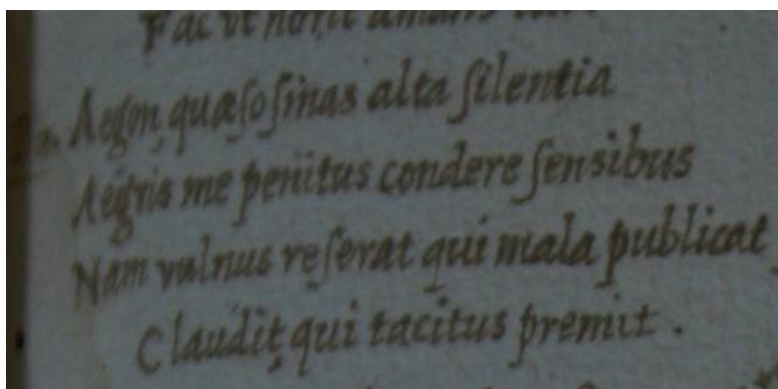 Fac vt norit amans
Aegon, quæso sinas alta silentia
Aegris me penitus condere sensibus
Nam vulnus reserat qui mala publicat
Claudit, qui tacitus premit.